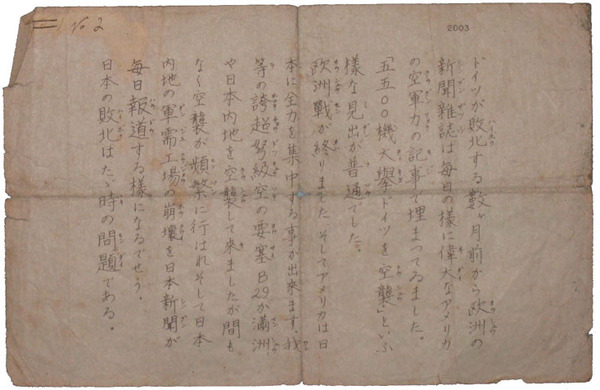 No 2
2003
ドイツが敗北する數ヶ月前から欧洲の
新聞雜誌は毎日の様に偉大なアメリカ
の空軍力の記事で埋まつてゐました。
「五五〇〇機大擧ドイツを空襲」といふ
様な見出が普通でした。
欧洲戰が終りました、そしてアメリカは日
本に全力を集中する事が出来ます。我
等の誇超弩級空の要塞B29が滿洲
や日本内地を空襲して来ましたが間も
なく空襲が頻繁に行はれそして日本
内地の軍需工場の崩壊を日本新聞が
毎日報道する様になるでせう。
日本の敗北はたゞ時の問題である。